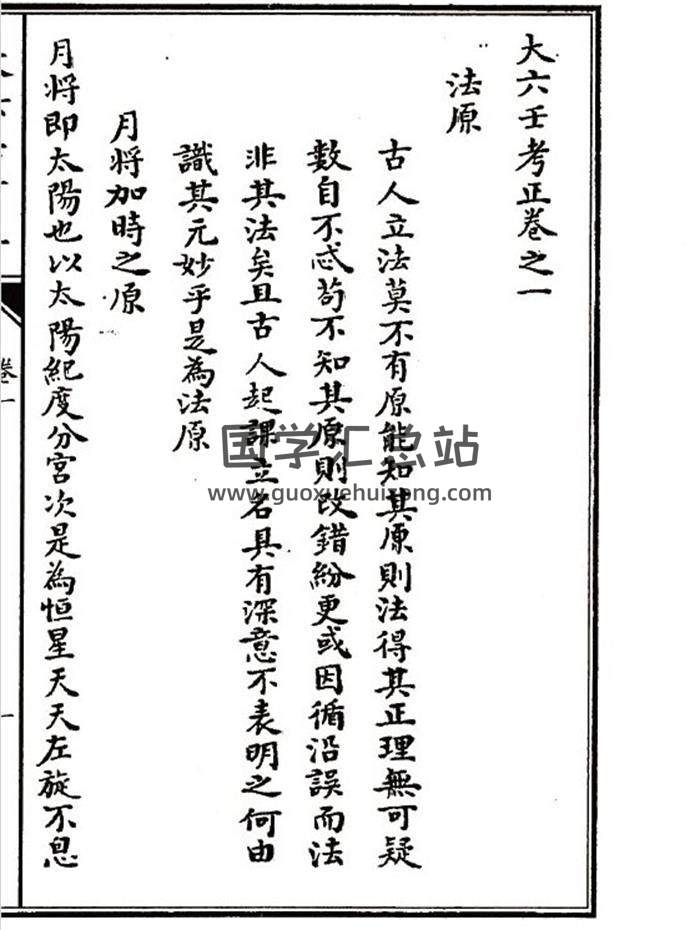 大六壬考正卷之一
法原
古人立法莫不有原能知其原則法得其正理無可疑
數自不忒苟不知其原則改錯紛更或因循沿誤而法
非其法矣且古人起課立名具有深意不表明之何由
識其元妙乎是為法原
月將加時之原
月將即太陽也以太陽紀度分宮次是為恒星天天左旋不息
卷一
一
国学汇总站
www.guoxuehuizong.com